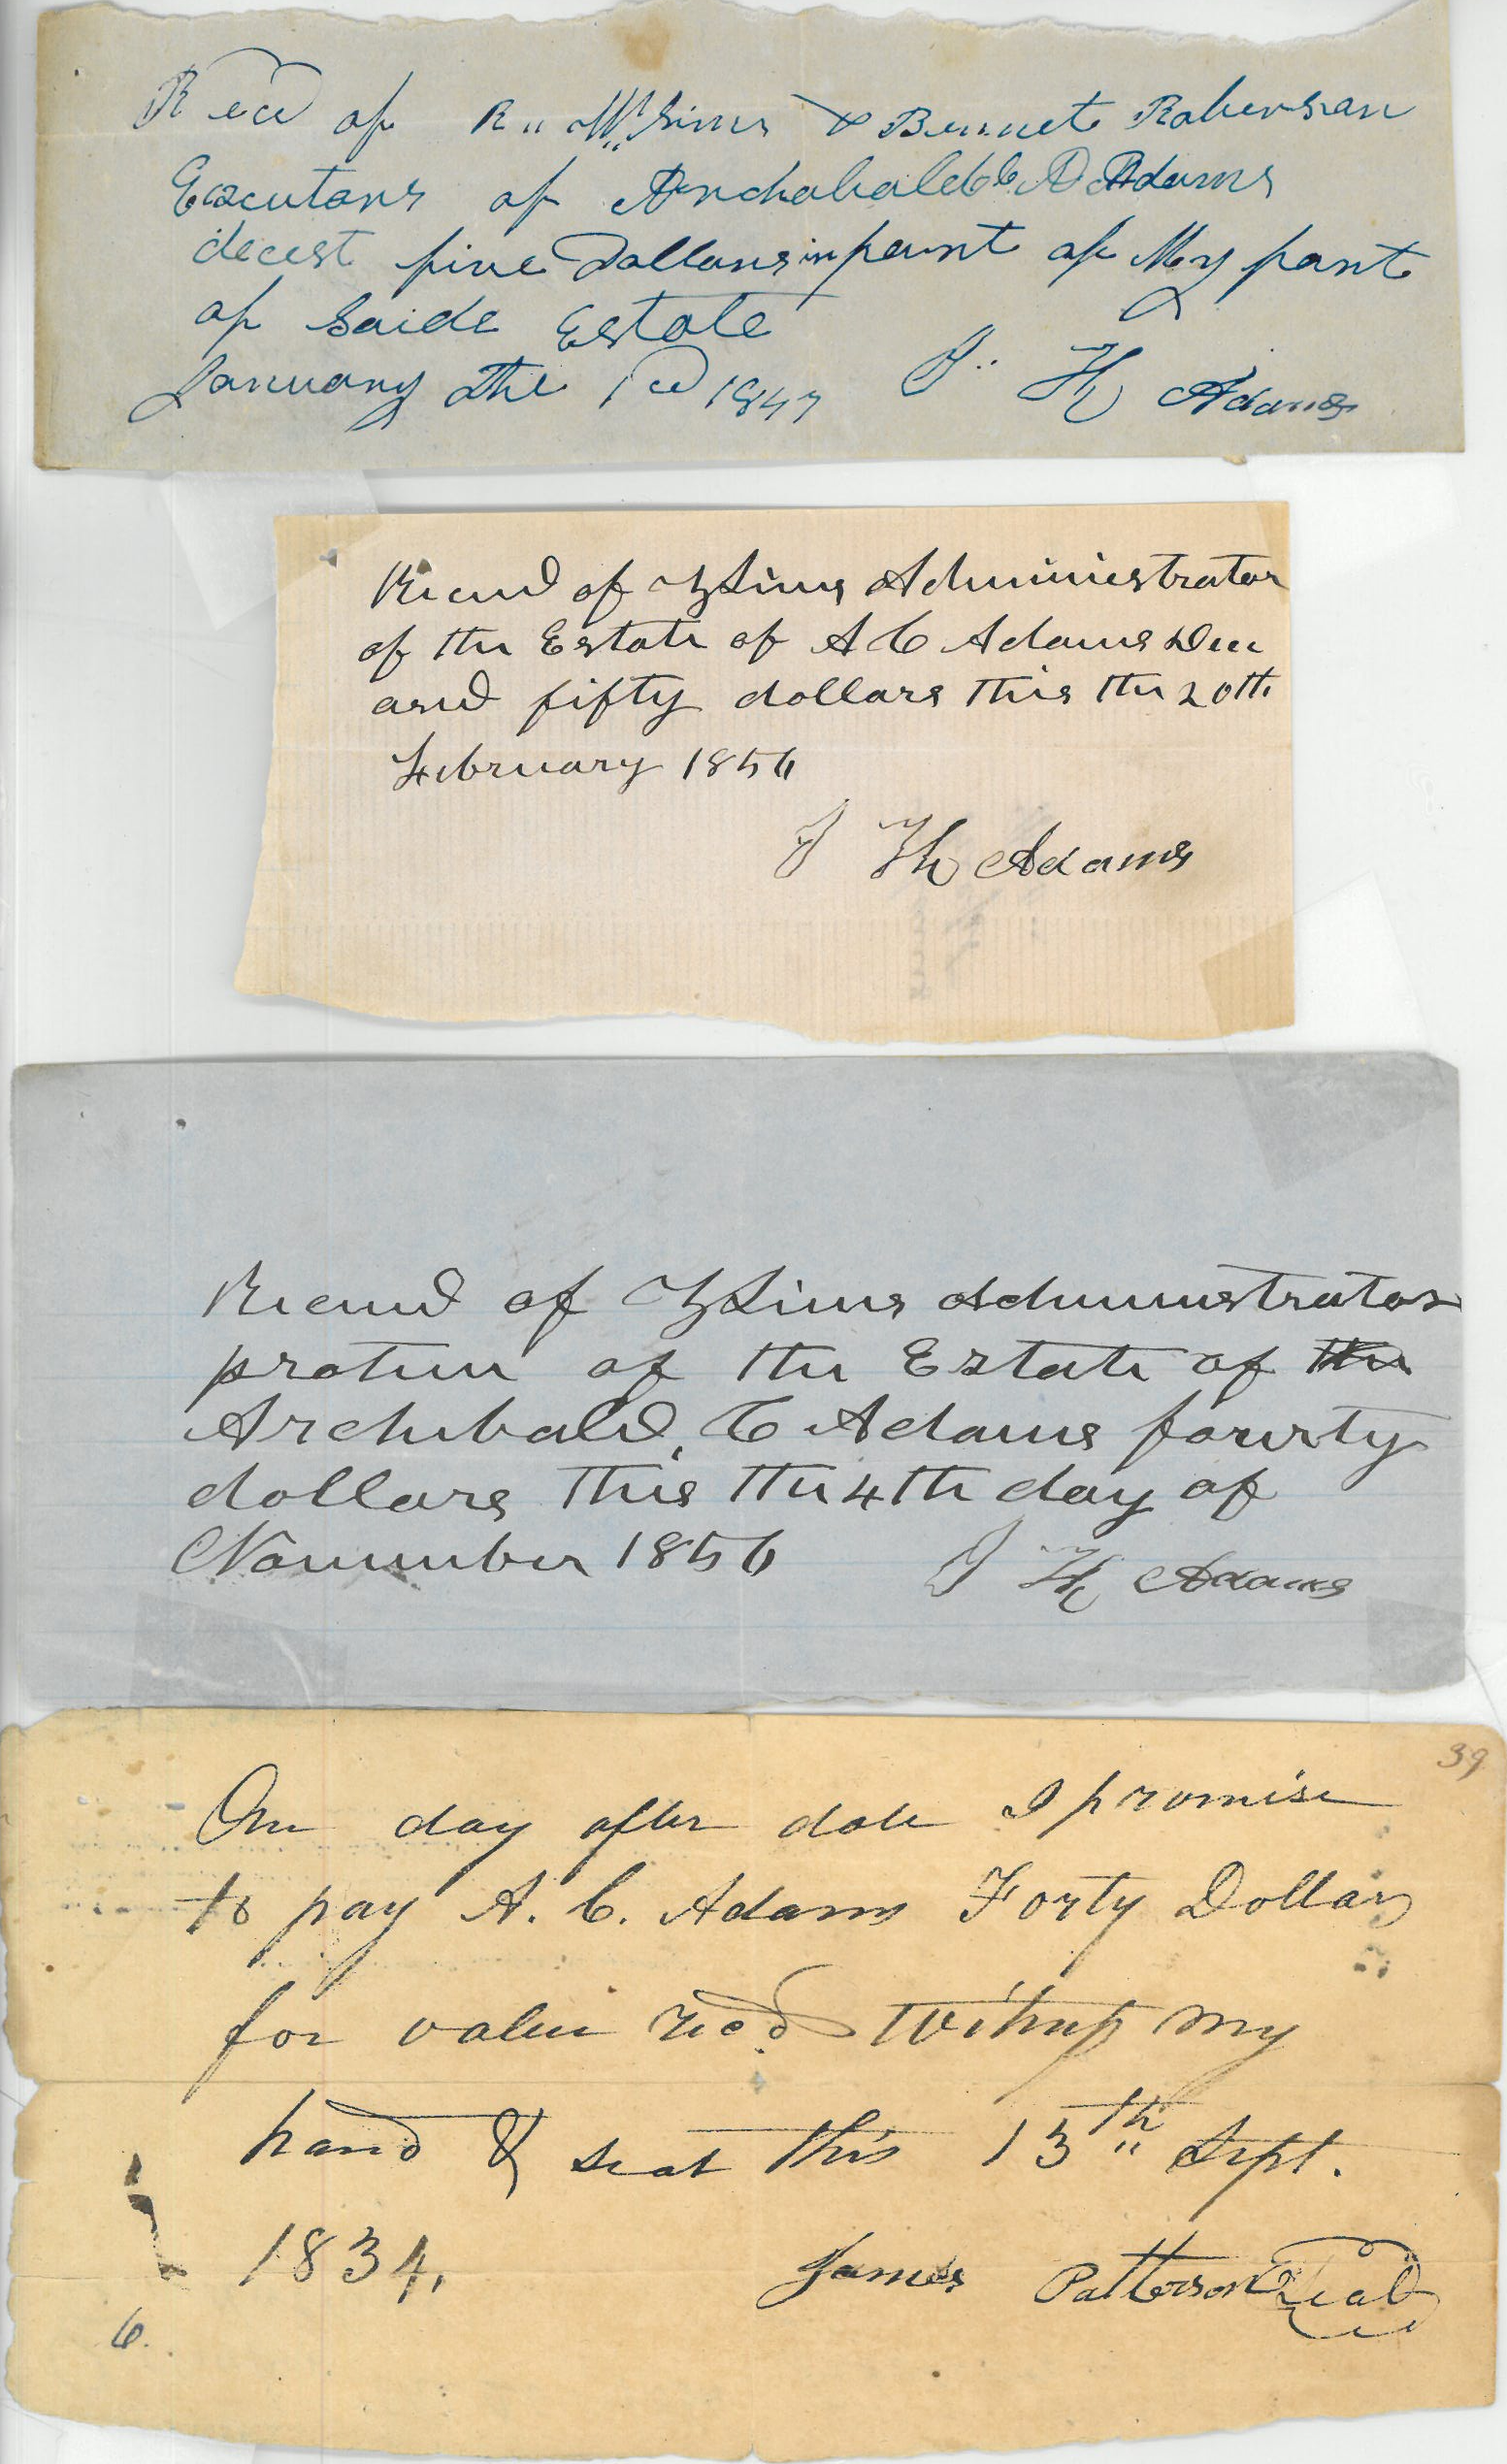 Recd of R. W. Sims & Bennet Roberson
Executors of Archabald C Adams
decest five Dollars in pamt of My part
of Saide Estate
January the 1cd 1847 J. H Adams
Recievd of Z Sims Administrator
of the Estate of A C Adams Dece
asd fifty dollars this the 20th
February 1856
J H Adams
Recievd of Z Sims Administrator
protem of the Estate of the
Archibald, C Adams fourty
dollars this the 4th day of
November 1856 J H Adams
39
One day after date I promise
to pay A. C. Adams Forty Dollars
for value recd Witness my
hand & seal this 13th Sept.
1834. James Patterson Seal
6.